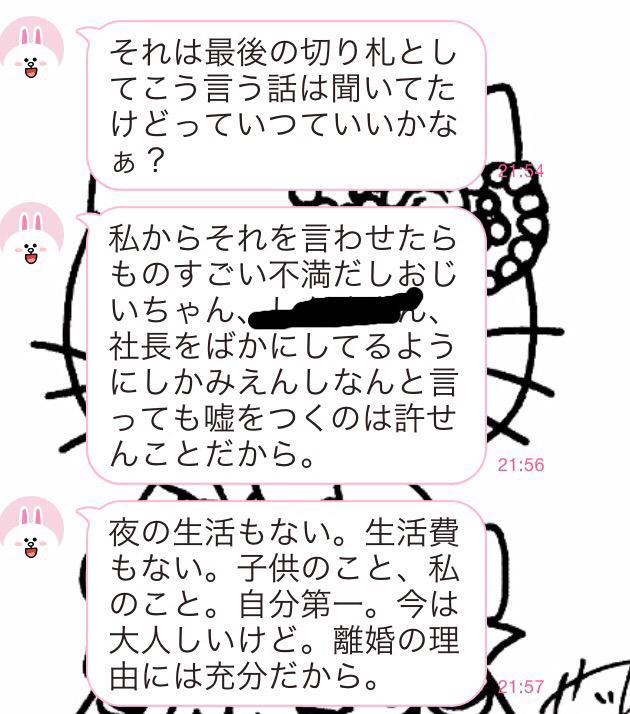 それは最後の切り札とし
てこう言う話は聞いてた
けどっていつていいかな
ぁ？
21:54
私からそれを言わせたら
ものすごい不満だしおじ
いちゃん、
ん、
社長をばかにしてるよう
にしかみえんしなんと言
っても嘘をつくのは許せ
んことだから。
21:56
夜の生活もない。生活費
もない。子供のこと、私
のこと。自分第一。今は
大人しいけど。離婚の理
由には充分だから。
21:57